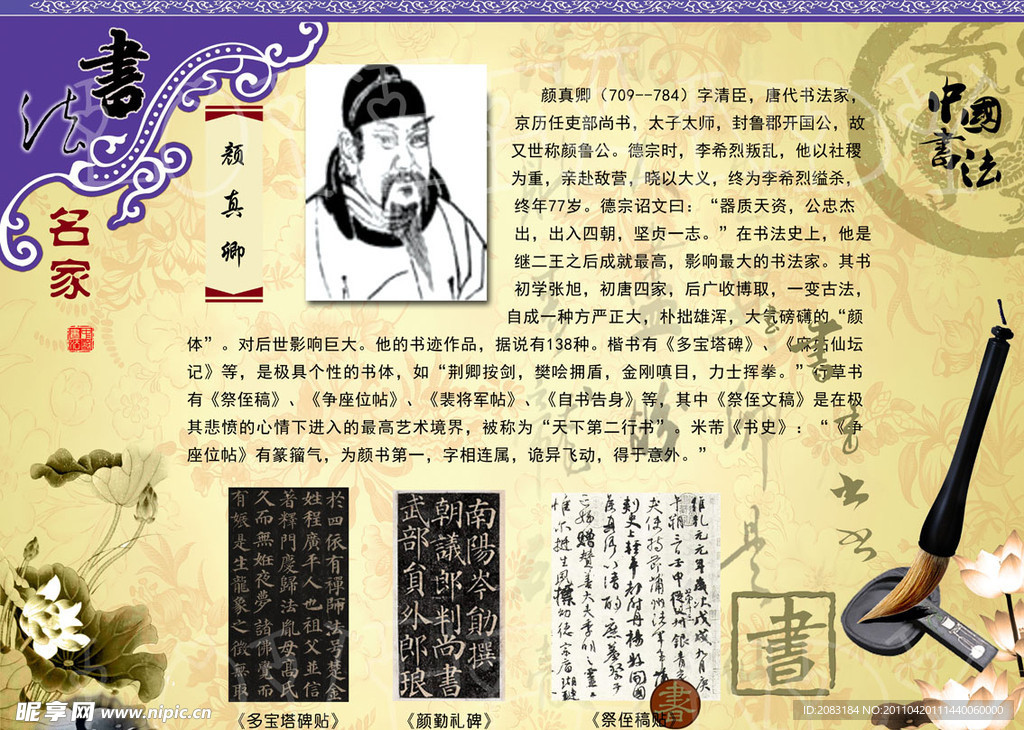 書
法
名
家
颜
真
卿
中國
書法
颜真卿（709--784）字清臣，唐代书法家，
京历任吏部尚书，太子太师，封鲁郡开国公，故
又世称颜鲁公。德宗时，李希烈叛乱，他以社稷
为重，亲赴敌营，晓以大义，终为李希烈缢杀，
终年77岁。德宗诏文曰：“器质天资，公忠杰
出，出入四朝，坚贞一志。”在书法史上，他是
继二王之后成就最高，影响最大的书法家。其书
初学张旭，初唐四家，后广收博取，一变古法，
自成一种方严正大，朴拙雄浑，大气磅礴的“颜
体”。对后世影响巨大。他的书迹作品，据说有138种。楷书有《多宝塔碑》、《麻姑仙坛
记》等，是极具个性的书体，如“荆卿按剑，樊哙拥盾，金刚嗔目，力士挥拳。”行草书
有《祭侄稿》、《争座位帖》、《裴将军帖》、《自书告身》等，其中《祭侄文稿》是在极
其悲愤的心情下进入的最高艺术境界，被称为“天下第二行书”。米芾《书史》：“《争
座位帖》有篆籀气，为颜书第一，字相连属，诡异飞动，得于意外。”
於四依有禪師法号楚金
姓程廣平人也祖父並信
著釋門慶歸法胤母高氏
久而無姙夜夢諸佛覺而
有娠是生龍象之徵無取
南陽岑勛撰
朝議郎判尚書
武部員外郎琅
維乾元元年歲次戊戌九月庚
書
書
《多宝塔碑贴》
《颜勤礼碑》
《祭侄稿贴》
昵享网 www.nipic.cn
ID:2083184 NO:20110420111440060000